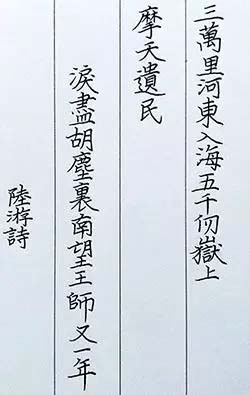 三萬里河東入海五千仞嶽上
摩天遺民
淚盡胡塵裏南望王師又一年
陸游詩